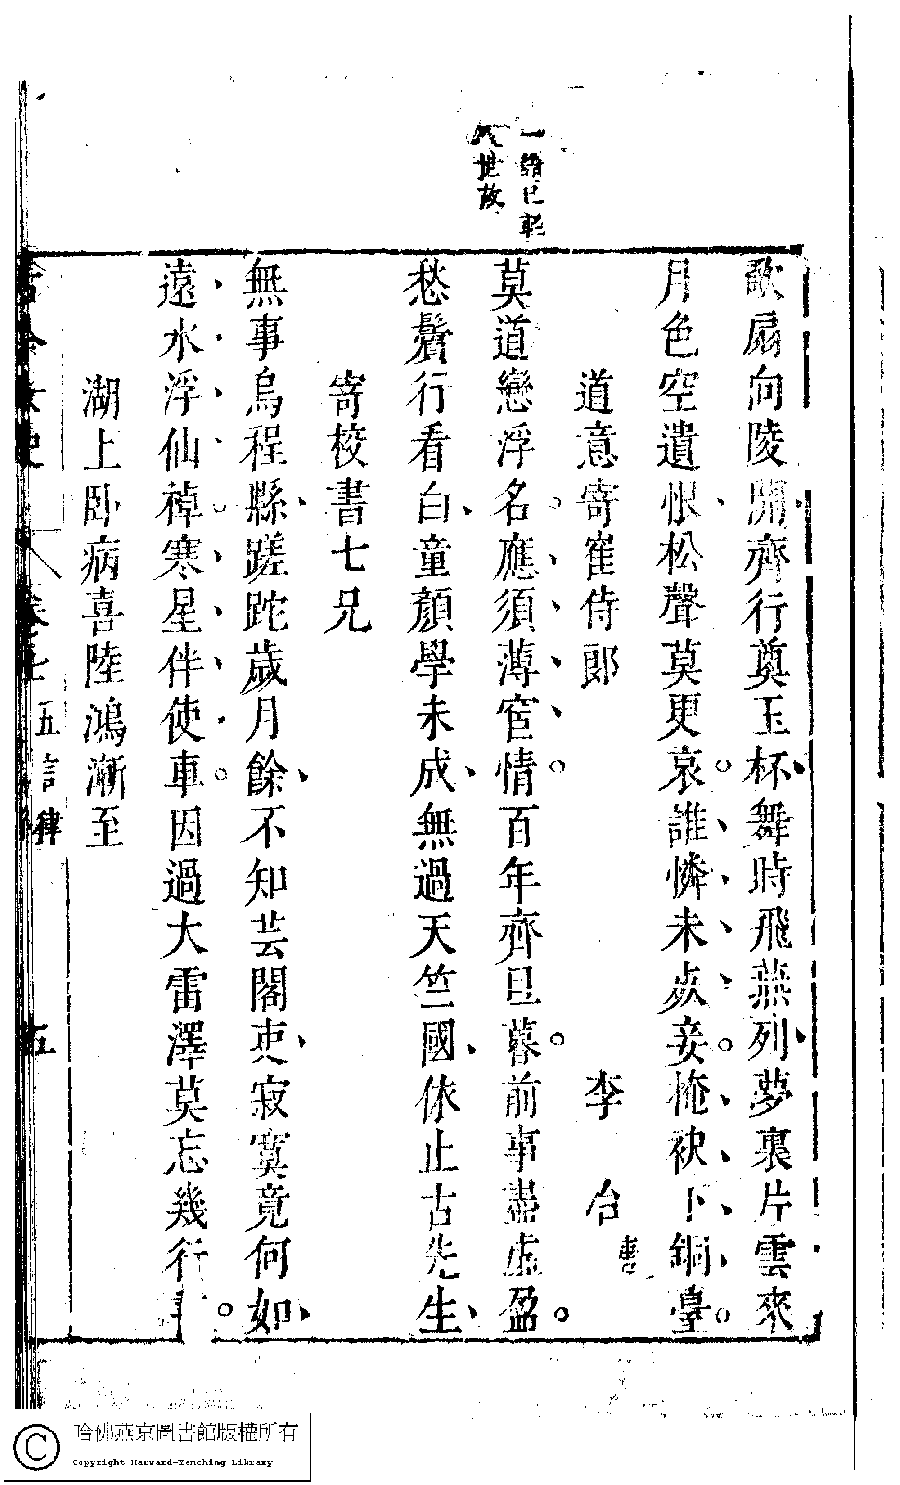 世故
歌扇向陵開齊行奠玉杯舞時飛燕列夢裏片雲來
月色空遺恨松聲莫更哀誰憐未死妾掩袂下銅臺
道意寄崔侍郎 李冶
莫道戀浮名應須薄宦情百年齊旦暮前事盡虛盈
愁鬢行看白童顏學未成無過天竺國依止古先生
寄校書七兄
無事烏程縣蹉跎歲月餘不知芸閣吏寂寞竟何如
遠水浮仙棹寒星伴使車因過大雷澤莫忘幾行書
湖上卧病喜陸鴻漸至
古今女史 卷七 五言律 五
哈佛燕京圖書館版權所有
Copyright Harvard-Yenching Library